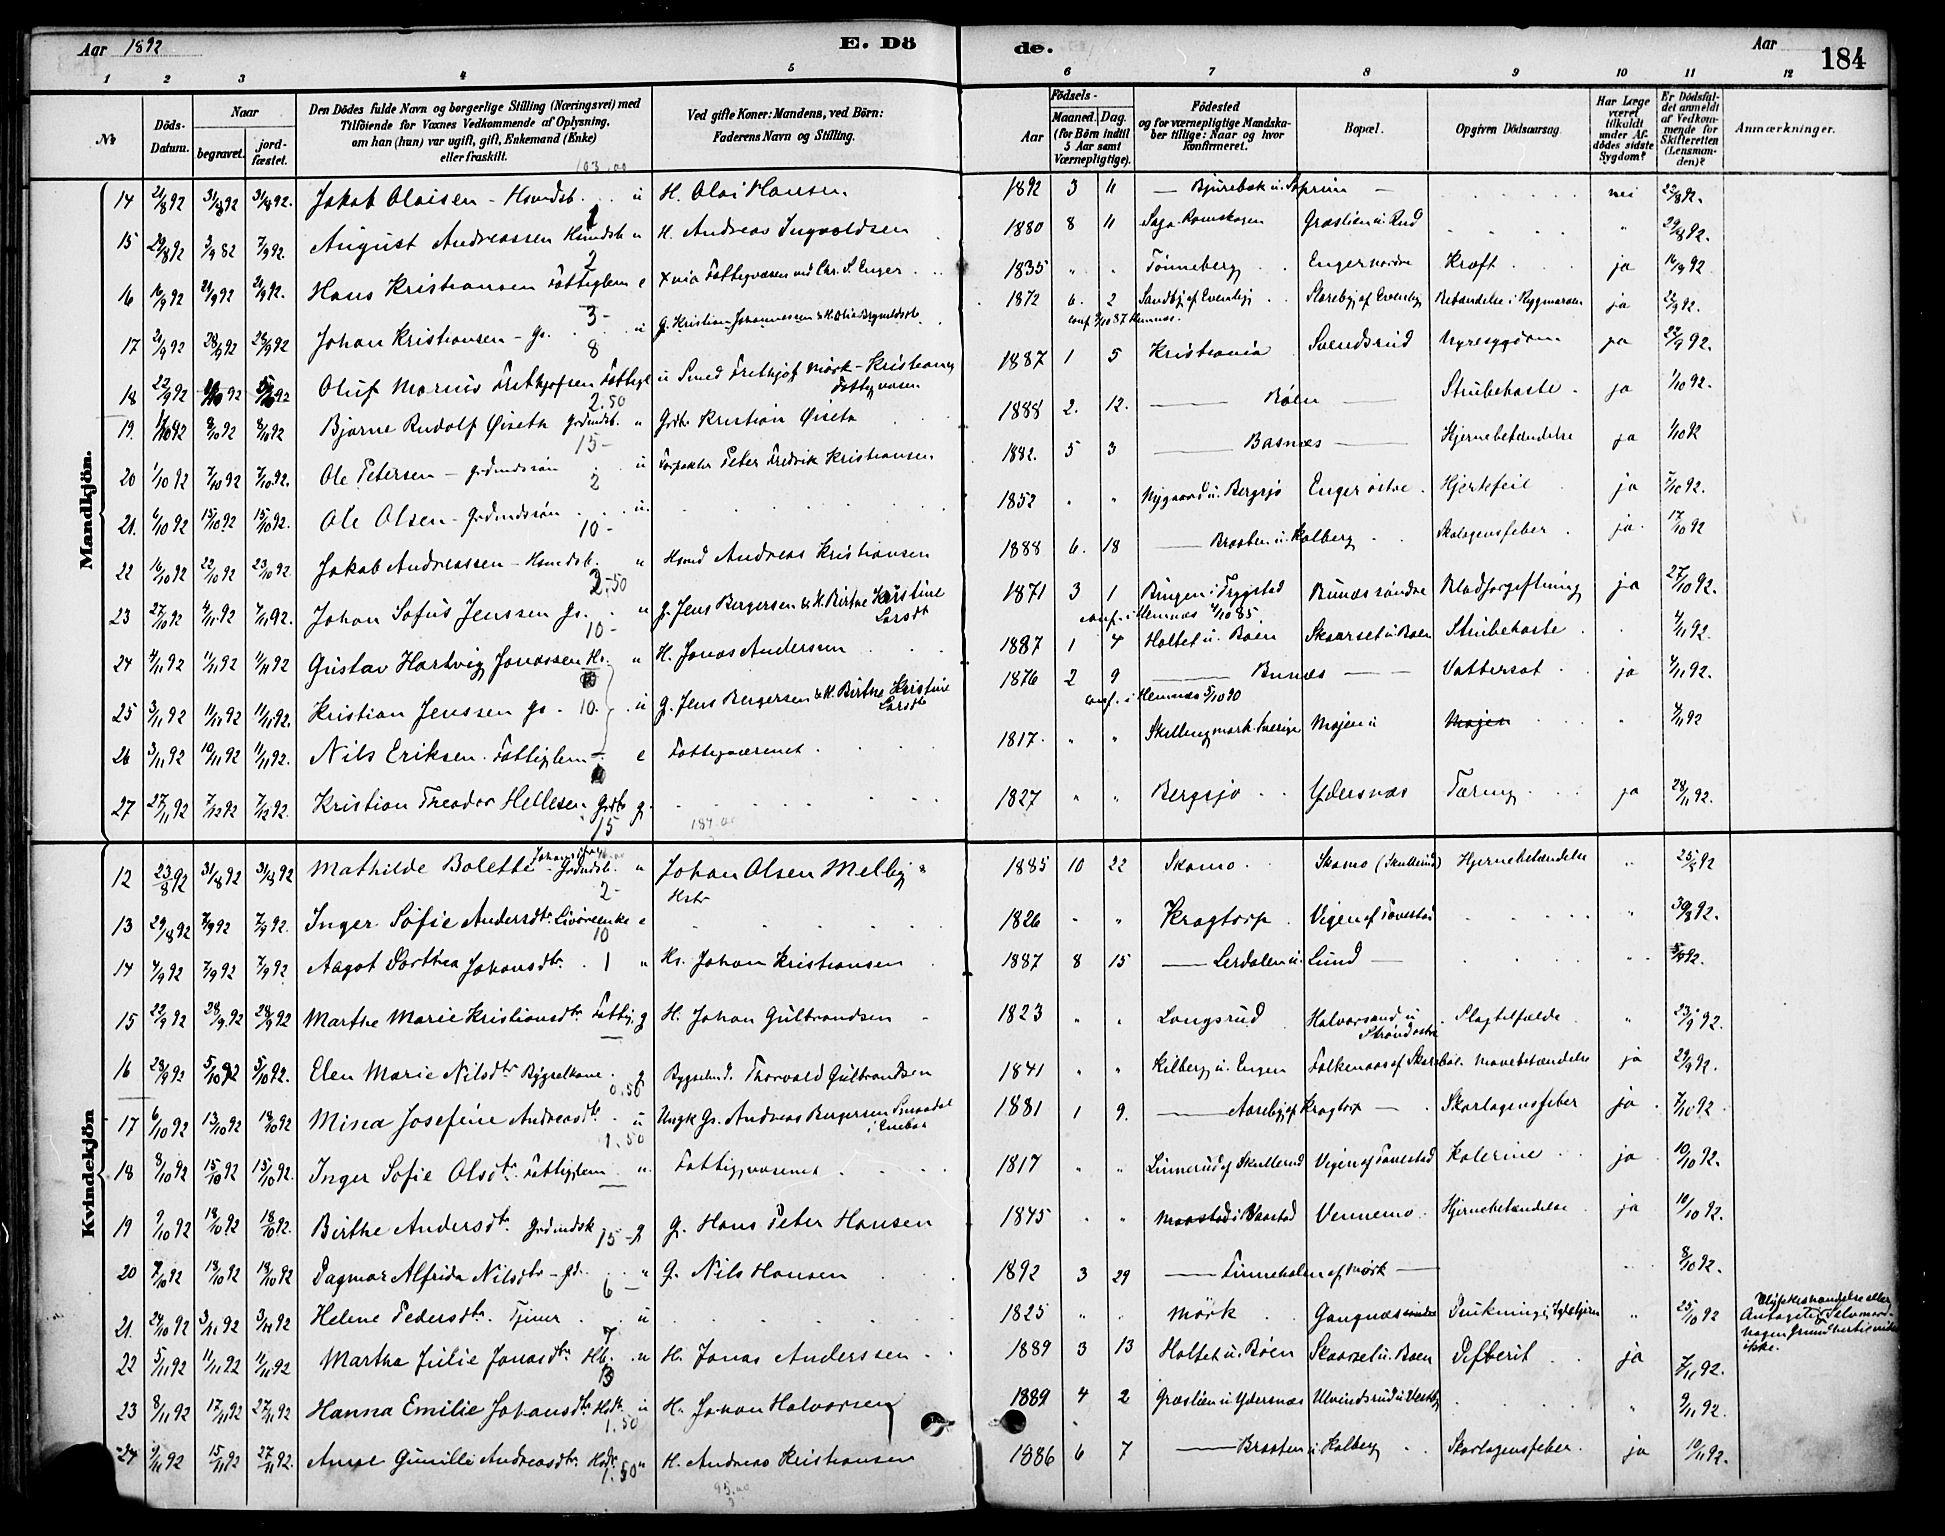 Aar 1892
E. Dö
de.
Aar
184
1 2 3 4 5 6 7 8 9 10 11 12
No
Döds-Datum.
Naar
begravet.
jordfæstet.
Den Dödes fulde Navn og borgerlige Stilling (Næringsvei) med
Tilföiende for Voxnes Vedkommende af Oplysning,
om han (hun) var ugift, gift, Enkemand (Enke)
eller fraskilt.
103.00
Ved gifte Koner: Mandens, ved Börn:
Faderens Navn og Stilling.
Födsels-
Aar
Maaned. Dag.
(for Börn indtil
5 Aar samt
Værnepligtige).
Födested
og for værnepligtige Mandskaber
tillige: Naar og hvor
konfirmeret.
Bopæl.
Opgiven Dödsaarsag.
Har Læge
været
tilkaldt
under Afdödes
sidste
Sygdom?
Er Dödsfaldet
anmeldt
af Vedkommende
for
Skifteretten
(Lensmanden)?
Anmærkninger.
Mandkjön.
14 21/8 92 31/8 92 31/8 92. Jakob Olaisen - Hsmdsb. u H. Olai Hansen. 1892 3 11 nei 22/8 92.
15 29/8 92 3/9 82 7/9 92. August Andreassen Hsmdsb u H. Andreas Ingvoldsen 1880 8 11 Græslien u. Rud " 29/8 92.
16 16/9 92 21/9 92 21/9 92. Hans Kristiansen Fattiglem e 1835 " " Tønneberg Enger nordre Kræft ja 16/9 92
17 21/9 92 28/9 92 28/9 92 Johan Kristiansen - Gs. u G. Kristian Johannessen 1872 6. 2 ja 22/9 92.
conf. 2/10 87 Hemnæs.
18 22/9 92 Oluf Marius Frithjofsen Fattigl u Smed Frithjof Mørk - Kristiania 1887 1 5 Kristiania Svendsrud Nyresygdom ja 22/9 92.
Fattigvæsen
19. 1/10 92 8/10 92 8/10 92 Bjarne Rudolf Øiseth Grdmdsb. " Grdbr Kristian Øiseth 1888 2. 12. Bøen Strubehoste ja 1/10 92.
20 1/10 92 7/10 92 7/10 92. Ole Petersen - Grdmdssøn u Forpakter Peter Fredrik Kristiansen 1882. 5 3 Basnæs Hjernebetændelse ja 1/10 92
21. 6/10 92 15/10 92 15/10 92. Ole Olsen - Grdmdssøn u. 1852 " " Nygaard u. Bergsjø Enger østre Hjertefeil ja 7/10 92.
22 16/10 92 22/10 92 23/10 92. Jakob Andreassen - Hsmdsb. " Hsmd Andreas Kristiansen 1888 6. 18 Braaten u. Kolberg Skarlagensfeber ja. 17/10 92
23 27/10 92 4/11 92 7/11 92. Johan Sofus Jenssen Gs. " G. Jens Bergersen & H. Birthe Kristine 1871 3 1 Bingen i Trygstad Bunæs søndre Blodforgiftning ja 27/10 92.
Larsdt conf. i Hemnæs 4/10 85.
24 4/11 92 11/11 92 11/11 92 Gustav Hartvig Jonassen Hs. " H. Jonas Andersen 1887 1 4 Holtet u. Boen Skaarset u. Boen Strubehoste 4/11 92.
25 3/11 92 11/11 92 11/11 92. Kristian Jenssen Gs u G. Jens Bergersen & H. Birthe Kristine 1876 2 9 Bunæs Vattersot ja 4/11 92.
Larsdt conf. i Hemnæs 5/10 90
26 3/11 92 10/11 92 11/11 92. Nils Eriksen. Fattiglem e Fattigvæsenet 1817 " " Skillingmark Sverige Mojen u Mojen " 4/11 92
27 27/11 92 7/12 92 7/12 92. Kristian Theodor Hellesen Grdbr g. 1827 " " Bergsjø Ydersnæs Tæring ja 28/11 92.
Kvindekjön
12 23/8 92 31/8 92 31/8 92 Mathilde Bolette Grdmdsb. " Johan Olsen Melby 1885 10 22 Skamo Skamo (Skullerud) Hjernebetændelse " 25/8 92
13 29/8 92 7/9 92 7/9 92. Inger Sofie Andersdtr. e 1826 " " Kragtorp Vigen af Tovestad " 30/8 92.
14 4/9 92 7/9 92 7/9 92 Aagot Dorthea Johansdtr. " Hs. Johan Kristiansen 1887 8 15 Lerdalen u. Lund " 5/9 92.
15 22/9 92 28/9 92 28/9 92 Marthe Marie Kristiansdtr. Fattig. g H. Johan Gulbrandsen 1823 " " Langsrud Halvorsund u Slagtilfælde " 23/9 92.
16 28/9 92 5/10 92 5/10 92. Elen Marie Nilsdtr Bygselkone g Bygselmd. Thorvald Gulbrandsen 1841 " " Kilberg u. Engen Mavebetændelse ja 29/9 92.
17 6/10 92 13/10 92 18/10 92 Mina Josefine Andreasdtr. u Ungk Gs. Andreas Bergersen 1881 1 9. Aarebg af Kragtorp Skarlagensfeber ja 7/10 92
18 8/10 92 15/10 92 15/10 92. Inger Sofie Olsdtr. Fattiglem u. Fattigvæsenet 1817 " " Linnerud af Skullerud Vigen af Tovestad Kolerine ja 10/10 92.
19 9/10 92 18/10 92 18/10 92. Birthe Andersdtr. Grdmdsk g G. Hans Peter Hansen 1845 " " Vennemo Hjernebetændelse ja 10/10 92.
20 7/10 92 18/10 92 18/10 92 Dagmar Alfrida Nilsdtr - Gd. " G. Nils Hansen 1892 3 29 Finneholm af Mørk 8/10 92.
21. 24/10 92 3/11 92 3/11 92 Helene Pedersdtr. Tjener u 1825 " " Mörk Gangnæs Drukning i Sjøen " 25/10 92 Ulykkeshændelse eller
Antagelig Selvmord
nogen Grund hertil vides
ikke.
22 5/11 92 11/11 92 11/11 92 Martha Julie Jonasdtr Hb. u H. Jonas Anderssen 1889 3 13 Holtet u. Bøen Skaarset u. Boen Difterit ja 7/11 92.
23 8/11 92 17/11 92 27/11 92 Hanna Emilie Johansdtr Hsdtr. u H. Johan Halvorsen 1889 4 2 Græslien u Ydersnæs Ulvindsrud u Vestby " 9/11 92.
24 9/11 92 15/11 92 27/11 92. Anne Gunille Andreasdtr. " H. Andreas Kristiansen 1886 6 7 Braaten u Kolberg Skarlagensfeber. ja 10/11 92.
95.00